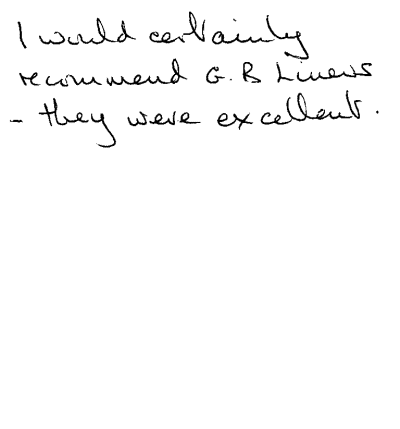 I would certainly
recommend G.B Liners
- they were excellent.